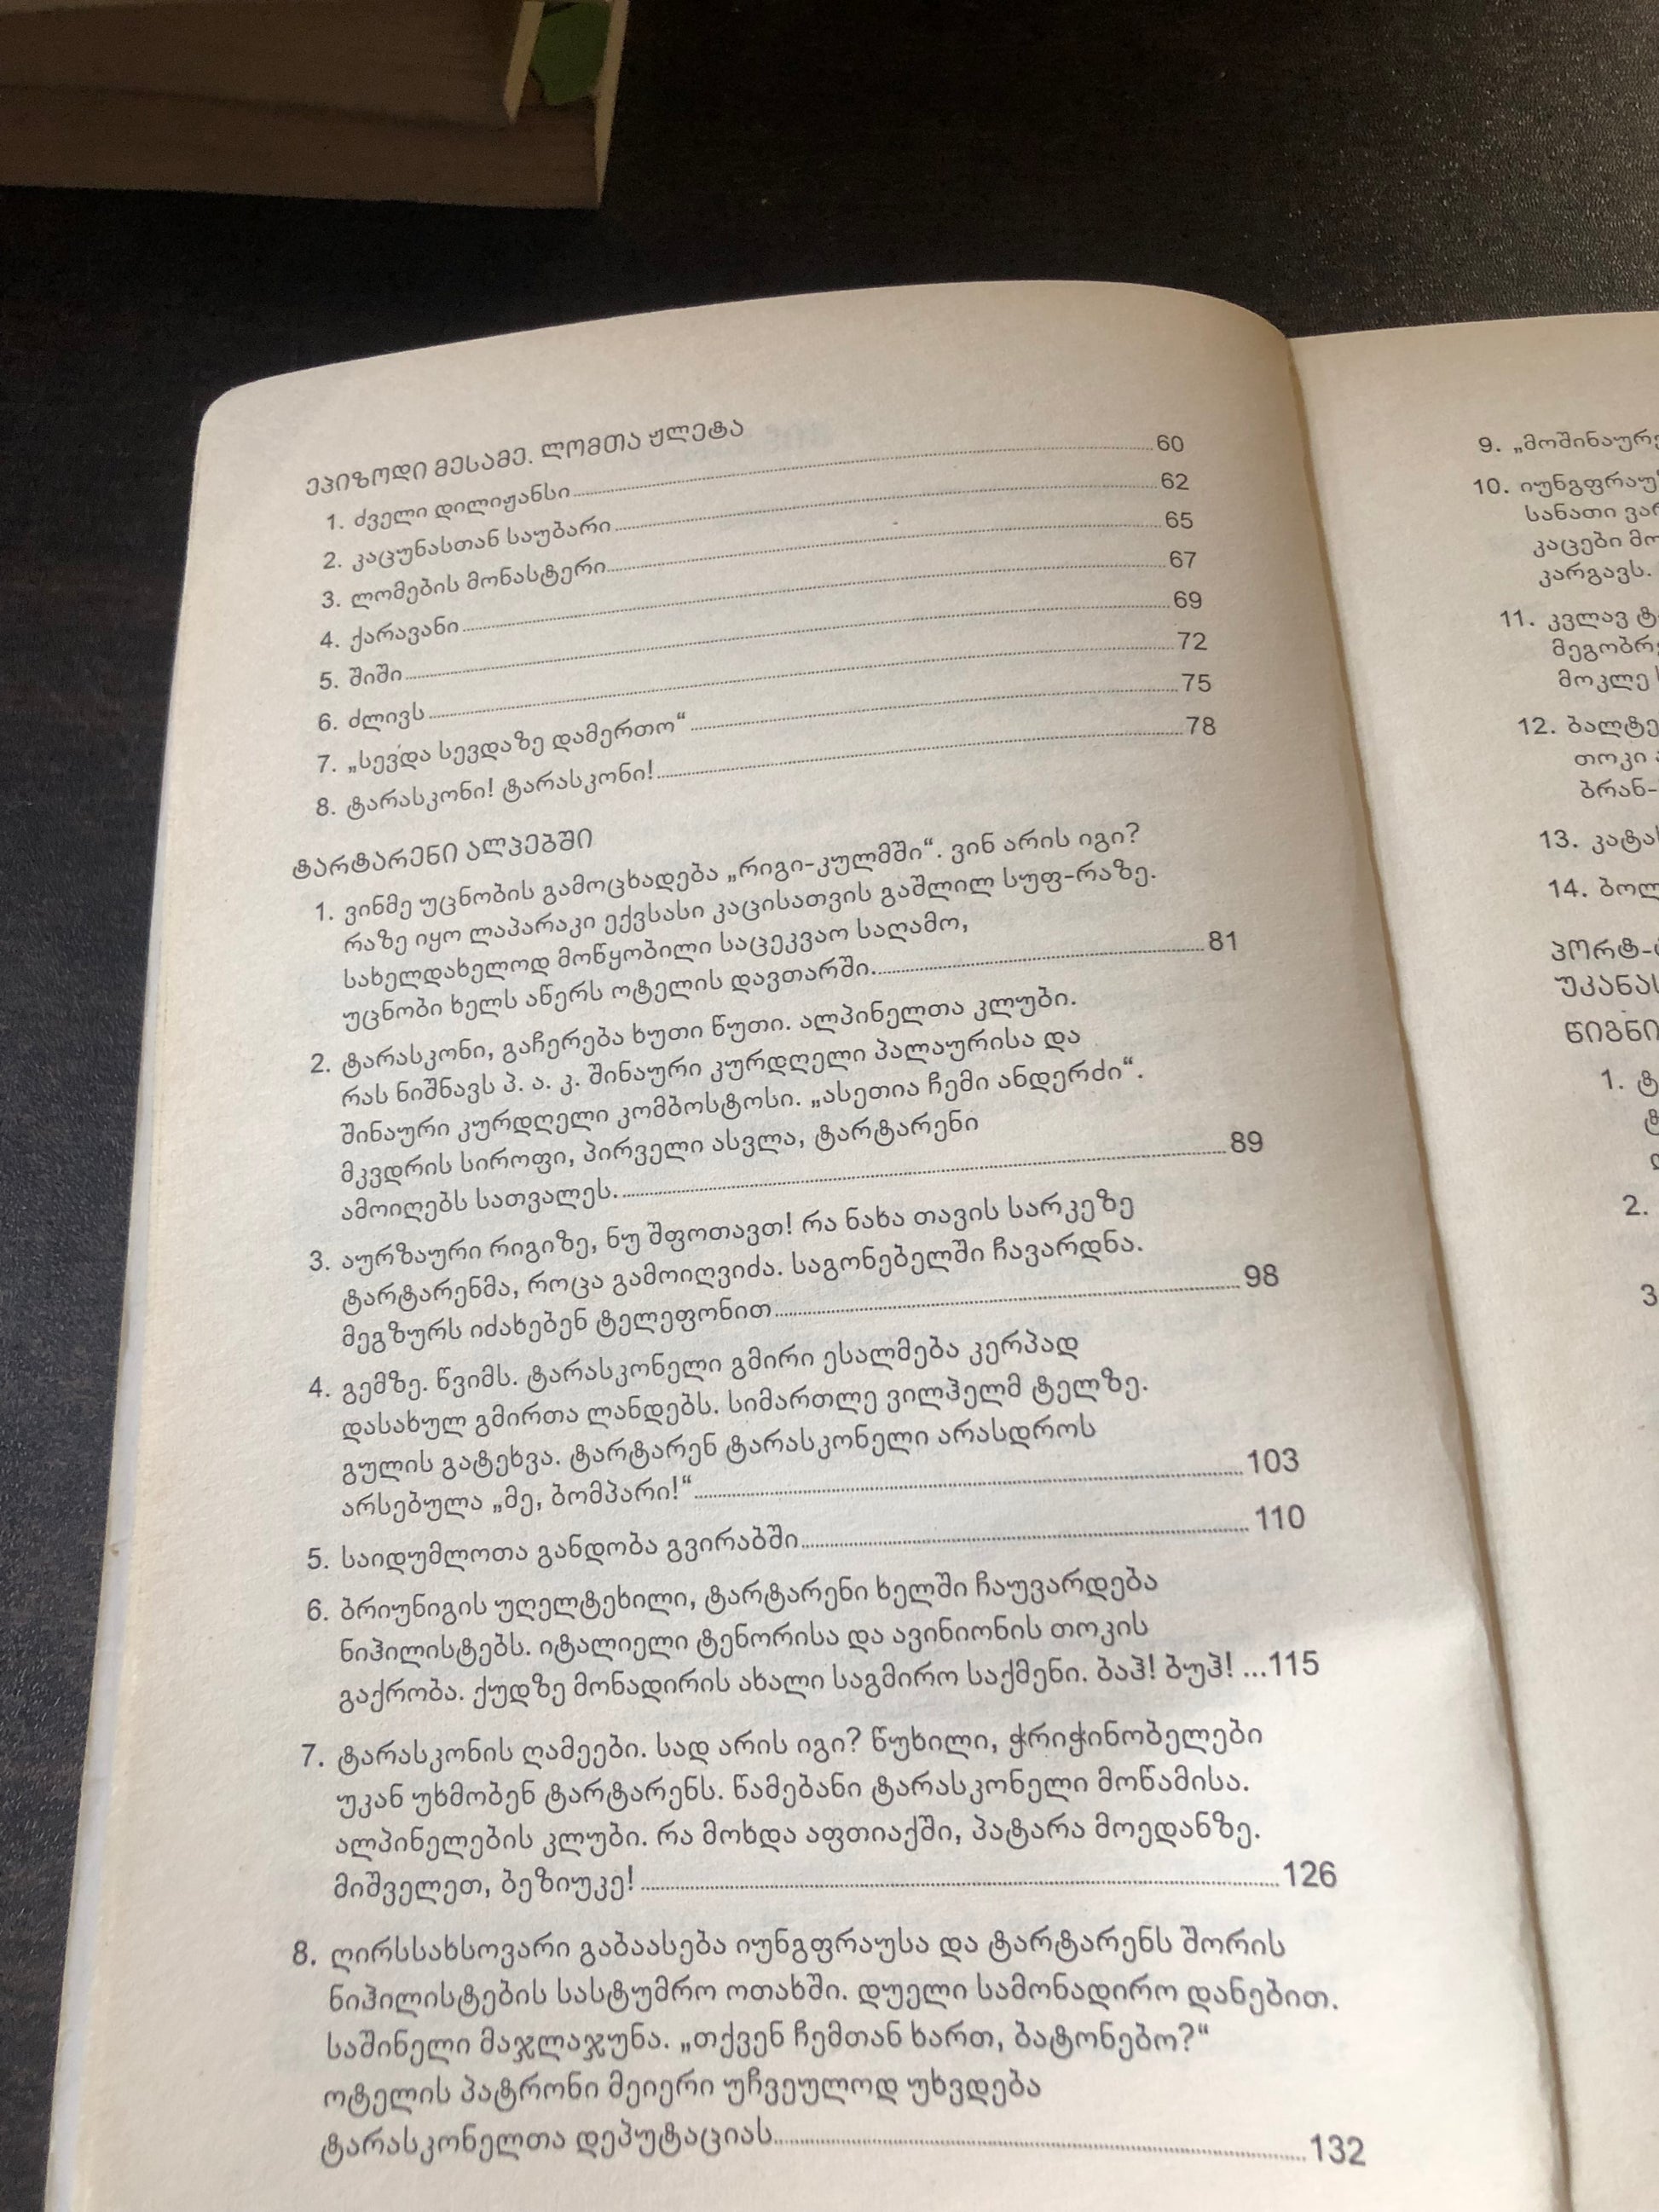 ეპიზოდი მესამე. ლომთა ჟლეტა
1. ძველი დილიჟანსი 60
2. კაცუნასთან საუბარი 62
3. ლომების მონასტერი 65
4. ქარავანი 67
5. შიში 69
6. ძლივს 72
7. „სევდა სევდაზე დამერთო“ 75
8. ტარასკონი! ტარასკონი! 78
ტარტარენი ალპებში
1. ვინმე უცნობის გამოცხადება „რიგი-კულმში“. ვინ არის იგი?
რაზე იყო ლაპარაკი ექვსასი კაცისათვის გაშლილ სუფ-რაზე.
სახელდახელოდ მოწყობილი საცეკვაო საღამო,
უცნობი ხელს აწერს ოტელის დავთარში. 81
2. ტარასკონი, გაჩერება ხუთი წუთი. ალპინელთა კლუბი.
რას ნიშნავს პ. ა. კ. შინაური კურდღელი პალაურისა და
შინაური კურდღელი კომბოსტოსი. „ასეთია ჩემი ანდერძი“.
მკვდრის სიროფი, პირველი ასვლა, ტარტარენი
ამოიღებს სათვალეს. 89
3. აურზაური რიგიზე, ნუ შფოთავთ! რა ნახა თავის სარკეზე
ტარტარენმა, როცა გამოიღვიძა. საგონებელში ჩავარდნა.
მეგზურს იძახებენ ტელეფონით 98
4. გემზე. წვიმს. ტარასკონელი გმირი ესალმება კერპად
დასახულ გმირთა ლანდებს. სიმართლე ვილჰელმ ტელზე.
გულის გატეხვა. ტარტარენ ტარასკონელი არასდროს
არსებულა „მე, ბომპარი!“ 103
5. საიდუმლოთა განდობა გვირაბში 110
6. ბრიუნიგის უღელტეხილი, ტარტარენი ხელში ჩაუვარდება
ნიჰილისტებს. იტალიელი ტენორისა და ავინიონის თოკის
გაქრობა. ქუდზე მონადირის ახალი საგმირო საქმენი. ბაჰ! ბუჰ! ...115
7. ტარასკონის ღამეები. სად არის იგი? წუხილი, ჭრიჭინობელები
უკან უხმობენ ტარტარენს. წამებანი ტარასკონელი მოწამისა.
ალპინელების კლუბი. რა მოხდა აფთიაქში, პატარა მოედანზე.
მიშველეთ, ბეზიუკე! 126
8. ღირსსახსოვარი გაბაასება იუნგფრაუსა და ტარტარენს შორის
ნიჰილისტების სასტუმრო ოთახში. დუელი სამონადირო დანებით.
საშინელი მაჯლაჯუნა. „თქვენ ჩემთან ხართ, ბატონებო?“
ოტელის პატრონი მეიერი უჩვეულოდ უხვდება
ტარასკონელთა დეპუტაციას 132
9.
10.
სანათი
კაცები
კარგავს.
11. კვლავ
მოკლე
12.
თოკი
13.
14.
1.
2.
3